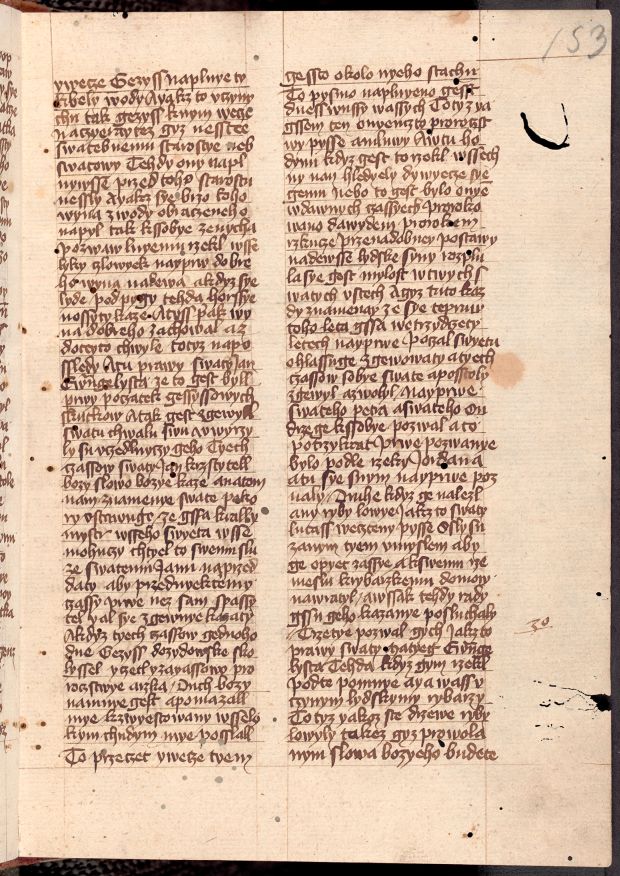 153
y wecze Gezyss naplnye ty
kbely wody Ayakz to vczyny
chu tak gezyss k nym wecze
naczyeraytez gyz nesstce
swatebnemu starostye neb
swatowy Tehdy ony napl
nywsse przed toho starostu
nessly Ayakz sye brzo koho
wyna z wody obraczeneho
napyl tak k ssobye zenycha
pozwaw lnyemu rzekl wsse
lyky czlowyek nayprw dobre
ho wyna nadawa a kdyz sye
lyde podpygy tehda horssye
nossyty kaze Atyss pak wy
na dobreho zachowal az
doteyto chwyle totyz napo
ssledy Atu prawy swaty Jan
Ewngelysta ze to gest byll
prwy poczatek gessyssowych
skutkow Atak gest zgewyll
swatu chwalu swu Vwyerzy
ly su vczedlnyczy geho Tyech
czassow swaty Jan krzstytell
bozy slowo bozye kaze anatom
nam znamenye swate poko
ry vstawuge ze gssa kralky
mystr wsseho swyeta wsse
mohuczy chtyel to swemu slu
ze swatemu Janu naprzed
daty aby przed nyekterymy
czassy prwe nez sam spassy
tel y al sye zgewnye kazaty
Akdyz tyech czassow gednoho
dne Gezyss do zydowske sko
lyssel y czetl yzayassowy pro
roczstwye arzka Duch bozy
namnye gest apomazall
mye k zwyestowany wsselı
kym chudym mye poslal
To przeczet y wecze tyem
gessto okolo nyeho stachu
To pysmo naplnyeno gest
dness wussy wassych Totyz ya
gssem ten o nyemzto proroczst
wy pysse amluwy Awtu ho
dynu kdyz gest to rzekl wssech
ny nan hledyely dywyecze sye
gemu nebo to gest bylo onye
wdawnych czassyech prorko
wano dawydem prorokem
rzkucze przenadobney postawy
nadewsse lydske syny rozplu
la sye gest mylost w twych s
watych vstech Agyz tuto kaz
dy znamenay ze sye teprw
toho leta gssa we trzydczety
letech nayprwe poczal swyetu
ohlassuge zgewowaty atyech
czassow sobye swate apposstoly
zgewyl azwolyl Nayprwe
swateho petra aswateho On
drzege k ssobye pozwal ato
potrzykrat Prwe pozwanye
bylo podle rzeky Jordana
atu sye snym nayprwe poz
naly Druhe kdyz ge nalezl
any ryby lowye Jakzto swaty
lucass weczteny pysse Oslyssu
zanym tyem vmyslem aby
ge opyet zassye akswemu rze
meslu k rybarzskemu domow
nawratyl awssak tehdy rady
gssu geho kazanye posluchaly
Trzetye pozwal gych Jakzto
prawy swaty matyegt Ewnge
lysta Tehda kdyz gym rzekl
podte pomnye aya wass v
czynym lydskymy rybarzy
Totyz yakoz ste drzewe ryby
lowyly takez gyz prowola
nym slowa bozyeho budete
30